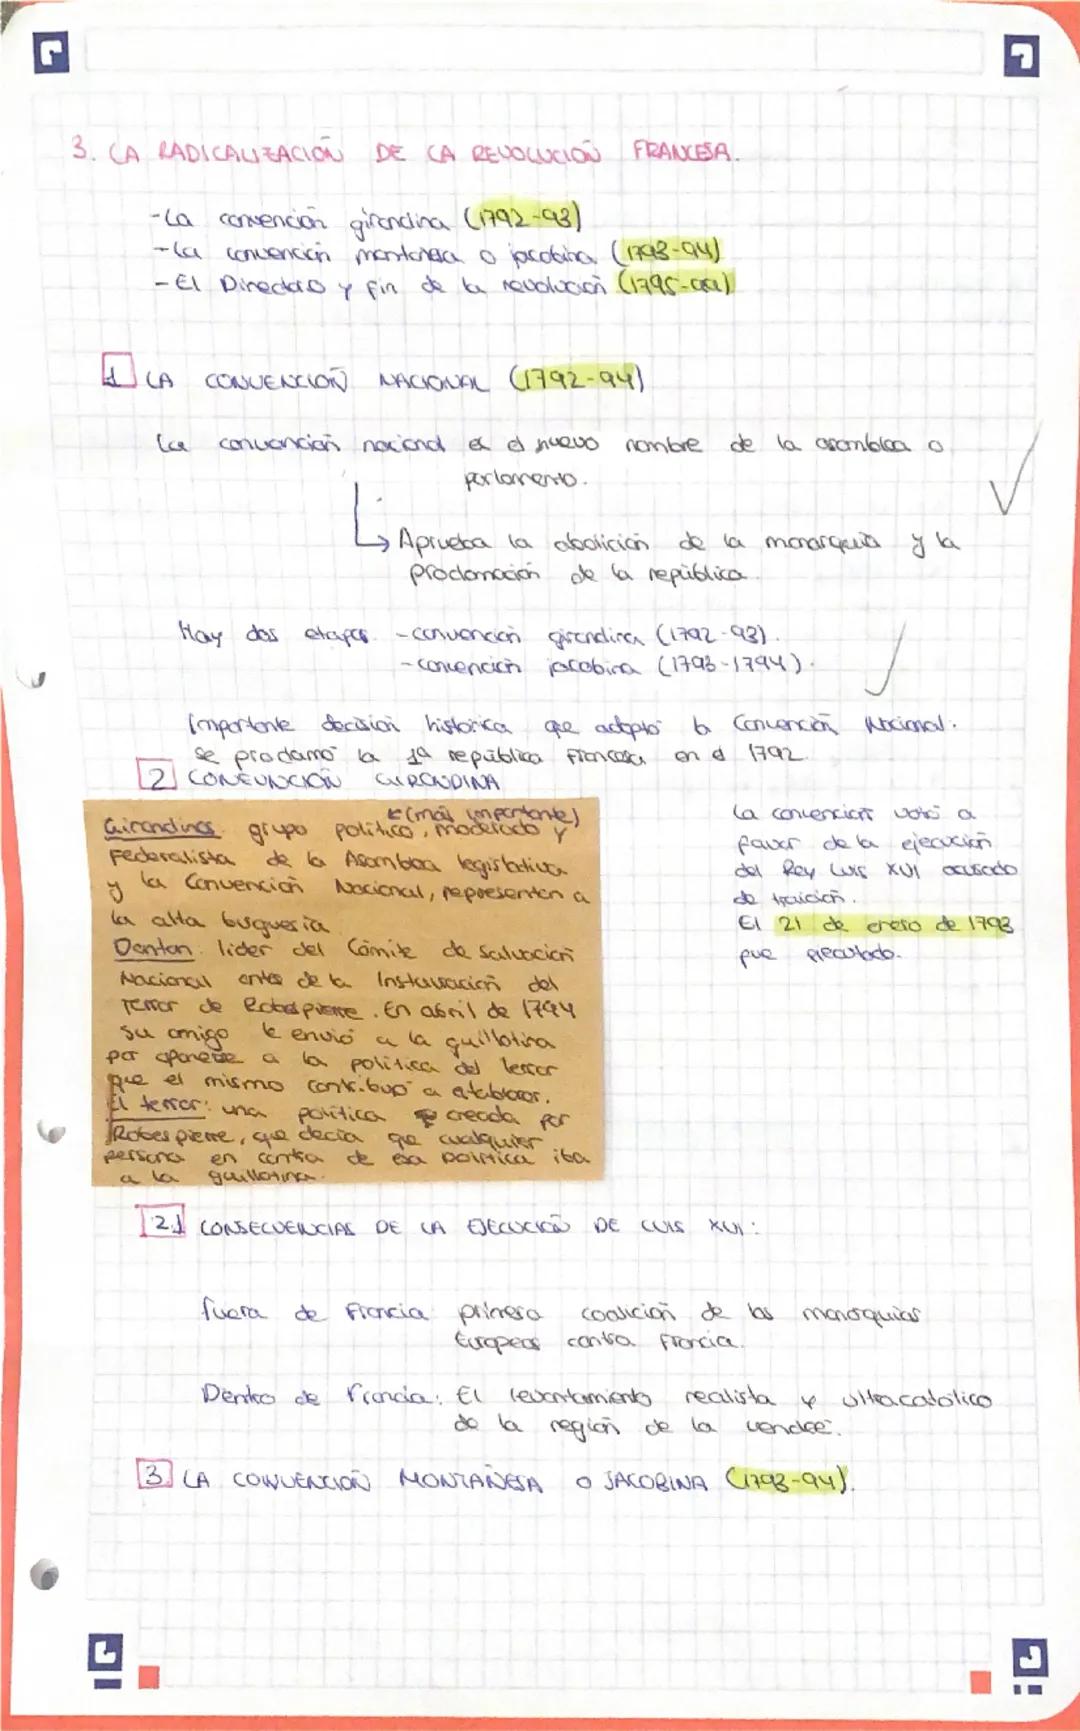 3. LA RADICALIZACIÓN DE LA REVOLUCIÓN FRANCESA.
-La convención girondina (1792-93)
-La convención montañesa o jacobina (1793-94)
-El Directorio y fin de la revolución (1795-99)
1 LA CONVENCIÓN NACIONAL (1792-94)
La convención nacional es el nuevo nombre de la asamblea o
parlamento.
Aprueba la abolición de la monarquía y la
proclamación de la república.
Hay dos etapas. -convención girondina (1792-93).
-convención jacobina (1793-1794).
Importante decisión histórica que adoptó la Convención Nacional:
se proclamó la 1ª república Francesa en el 1792.
2 CONEUNCIÓN GIRONDINA
(más importante)
Girondinos: grupo político, moderado y
Federalista de la Asamblea legislativa
y la Convención Nacional, representan a
la alta burguesía
Danton: líder del Cómite de Salvación
Nacional antes de la Instauración del
Terror de Robespierre. En abril de 1794
su amigo le envió a la guillotina
por oponerse a la política del terror
que el mismo contribuyó a establecer.
El terror: una política creada por
Robespierre, que decía que cualquier
persona en contra de esa política iba
a la guillotina.
La convención votó a
favor de la ejecución
del Rey Luis XVI acusado
de traición.
El 21 de enero de 1793
fue ejecutado.
2.1 CONSECUENCIAS DE LA EJECUCIÓN DE LUIS XVI:
fuera de Francia: primera coalición de las monarquías
Europeas contra Francia.
Dentro de Francia: El levantamiento realista y ultracatólico
de la región de la vendée.
3. LA CONVENCIÓN MONTAÑESA O JACOBINA (1793-94).